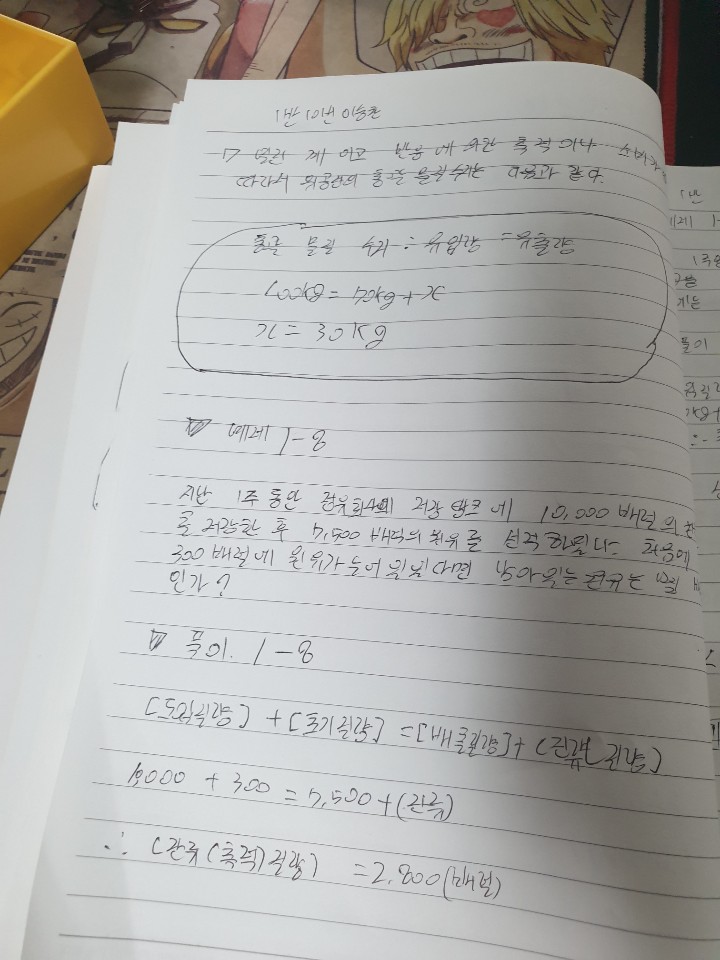 1반 10번 이승찬
▷ 물질 제 어고 반응에 의한 축적이나 소비가
따라서 위공간의 총괄 물질수지는 다음과 같다.
총괄 물질 수지 : 유입량 = 유출량
100kg = 70kg + x
x = 30kg
▽ 예제 1-8
지난 1주 동안 정유회사의 저장 탱크에 10,000 배럴의
를 저장한 후 7,500 배럴의 원유를 선적하였다. 처음에
300 배럴에 원유가 들어 있었다면 남아있는 원유는 몇
인가?
▽ 풀이. 1-8
[도입질량] + [초기질량] = [배출질량] + (잔류 질량)
10,000 + 300 = 7,500 + (잔류)
∴ (잔류(축적)질량) = 2.800(배럴)
1반
예제 1-
풀이